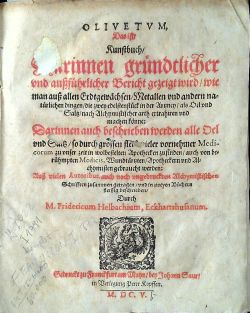 OLIVETVM,
Das ist
Kunstbuch/
Darinnen gründtlicher
vnd außführlicher Bericht gezeigt wird/ wie
man auß allen Erdtgewächsen/ Metallen vnd andern na-
türlichen dingen/ die zwey edelste stück in der Artzney/ als Oel vnd
Saltz/ nach Alchymistischer arth/ extrahiren vnd
machen könne:
Darinnen auch beschrieben werden alle Oel
vnd Saltz/ so durch grossen vornehmer Medi-
corum zu vnser zeit in wolbestelten Apotecken zu finden/ auch von be-
rühmpten Medicis, Wundtärtzten, Apoteckern vnd Al-
chymisten gebraucht werden:
Auß vielen Autoribus, auch noch vngedruckten Alchymistischen
Schrifften zusammen getragen/ vnd in zweyen Büchern
fleissig beschrieben/
Durch
M. Fridericum Helbachium, Eckhartshusinum.
Gedruckt zu Franckfurt am Mayn/ bey Johann Saur/
in Verlegung Peter Kopffen.
M. DC. V.